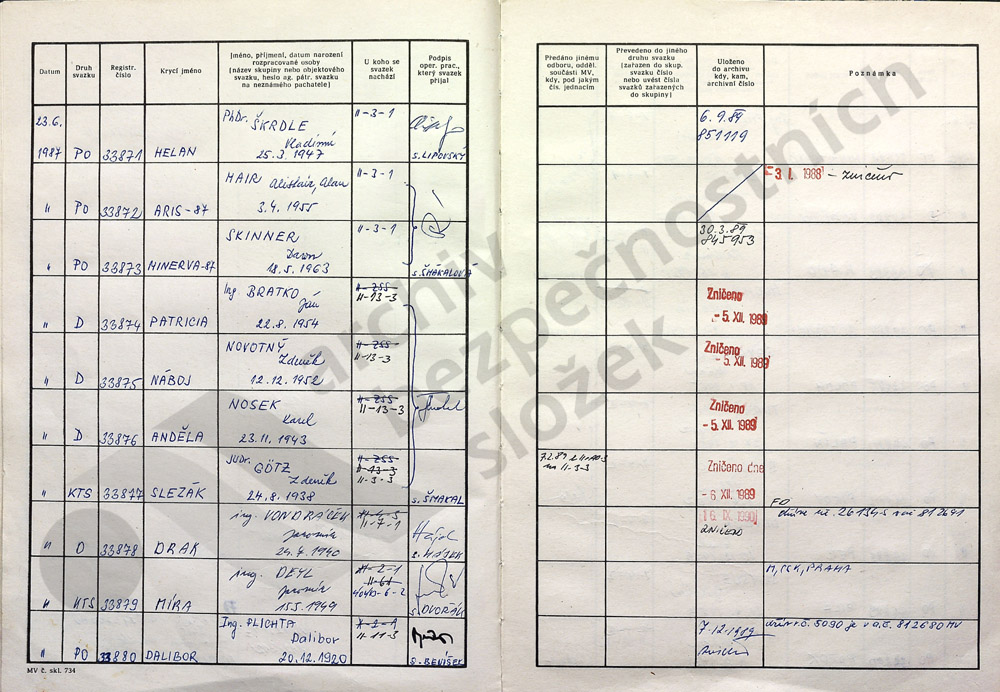 Datum
Druh
svazku
Registr.
číslo
Krycí jméno
Jméno, příjmení, datum narození
rozpracované osoby
(název skupiny nebo objektového
svazku, heslo ag. pátr. svazku
na neznámého pachatele)
U koho se
svazek
nachází
Podpis
oper. prac.,
který svazek
přijal
Předáno jinému
odboru, odděl.
součásti MV,
kdy, pod jakým
čís. jednacím
Převedeno do jiného
druhu svazku
(zařazen do skup.
svazku číslo
nebo uvést čísla
svazků zařazených
do skupiny)
Uloženo
do archivu
kdy, kam,
archivní číslo
Poznámka
23.6.
1987 PO 33871 HELAN
PhDr. ŠKRDLE
Vladimír
25.3.1947
II-3-1
s. LIPOVSKÝ
6.9.89
851119
" PO 33872 ARIS-87
MAIR Alistair, Alan
3.4.1955
II-3-1
-3. I. 1988 - zničit
" PO 33873 MINERVA-87
SKINNER
18.5.1963
II-3-1
s. ŠMAKALOVÁ
30.3.89
845953
" D 33874 PATRICIA
Ing BRATKO
Ján
22.8.1954
II-255
II-13-3
Zničeno
-5. XII. 1989
" D 33875 NÁBOJ
NOVOTNÝ
Zdeněk
12.12.1952
II-255
II-13-3
Zničeno
-5. XII. 1989
" D 33876 ANDĚLA
NOSEK
Karel
23.11.1943
II-255
II-13-3
Zničeno
-5. XII. 1989
" KTS 33877 SLEZÁK
JUDr. GÖTZ
Zdeněk
24.8.1938
II-255
II-13-3
II-3-3
s. ŠMAKAL
Zničeno dne
-6. XII. 1989
" D 33878 DRAK
ing. VONDRÁČEK
Jaromír
II-7-1
s. HÁJEK
16. IX. 1990
ZNIČENO
FO
" KTS 33879 MÍRA
ing. DEYL
Jaromír
15.5.1949
s. DVOŘÁK
" PO 33880 DALIBOR
Ing. PLICHTA
Dalibor
20.12.1920
II-11-3
s. BENÍŠEK
7.12.1989
MV č. skl. 734
archiv
bezpečnostních
složek